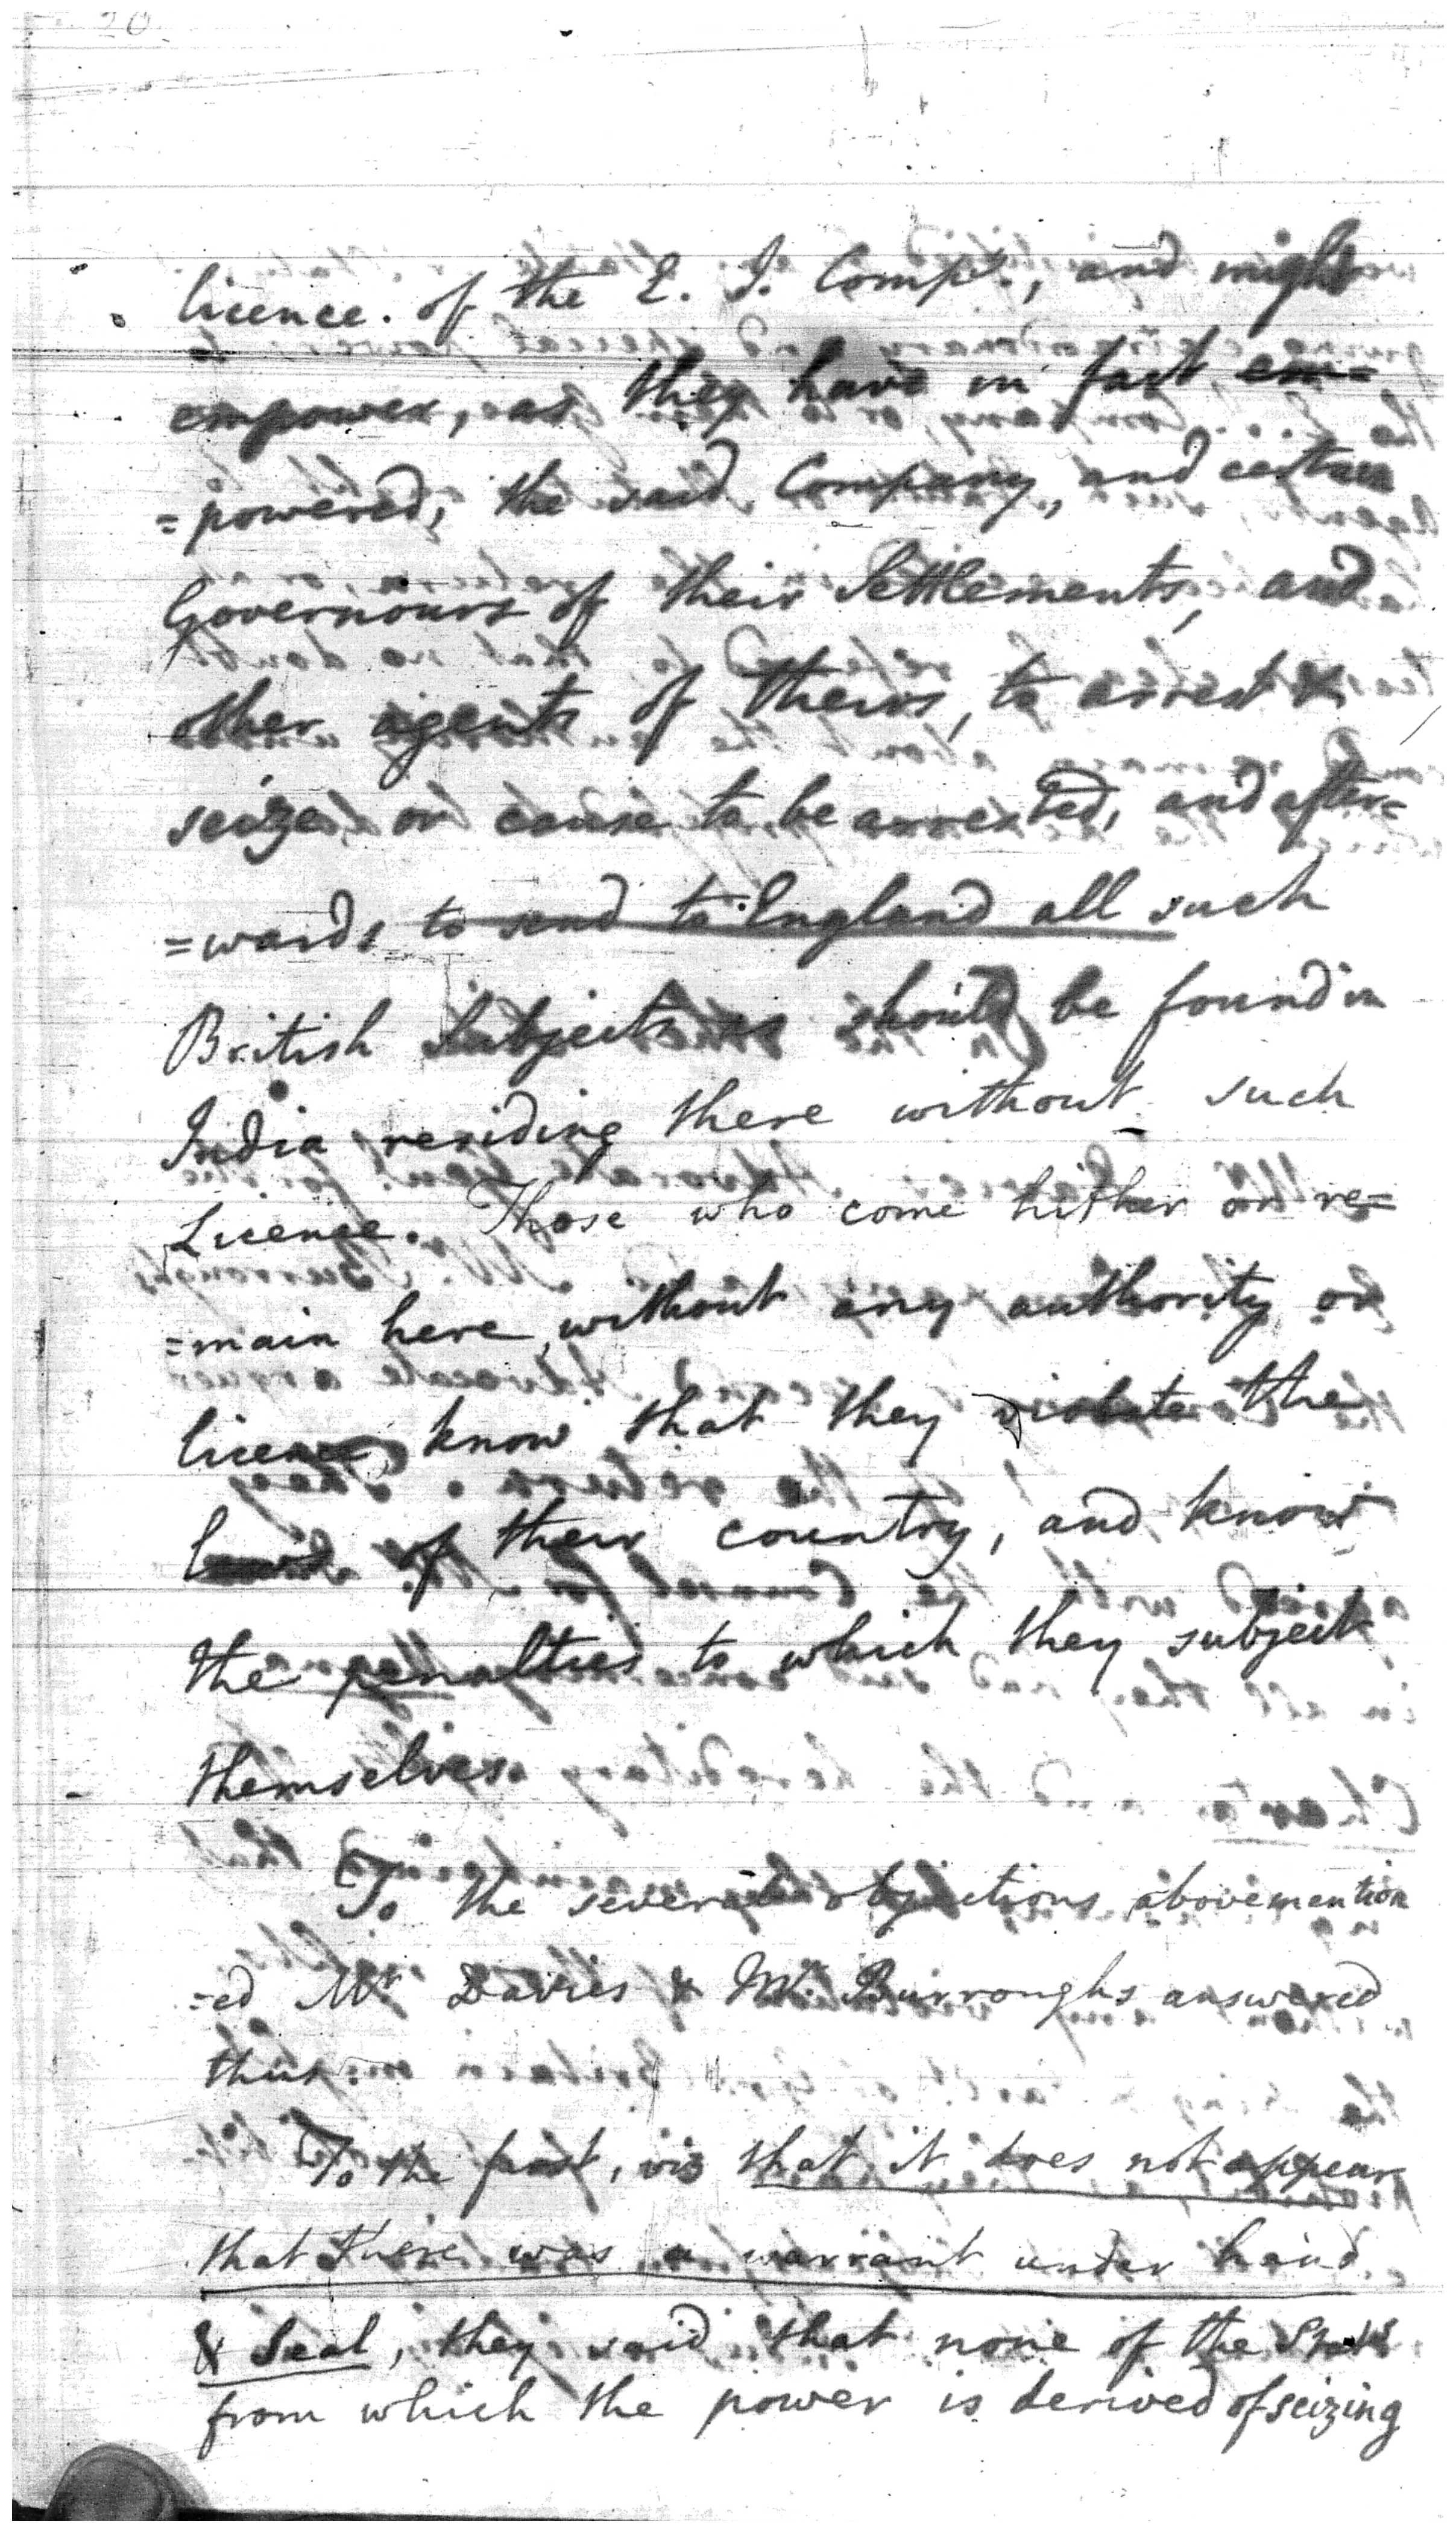 20.
licence. of the E. I. Compy., and might
empower, as they have in fact em=
=powered, the said Company, and certain
Governours of their Settlements, and
other agents of theirs, to arrest &
seize, or cause to be arrested, and after=
=wards to send to England all such
British Subjects as should be found in
India residing there without such
Licence. Those who come hither or re=
=main here without any authority or
licence, know that they violate the
laws of their country, and know
the penalties to which they subject
themselves.
To the several objections abovemention
=ed Mr Davies & Mr. Burroughs answered
thus
To the first, viz that it does not appear
that there was a warrant under hand
& Seal, they said that none of the
from which the power is derived of seizing